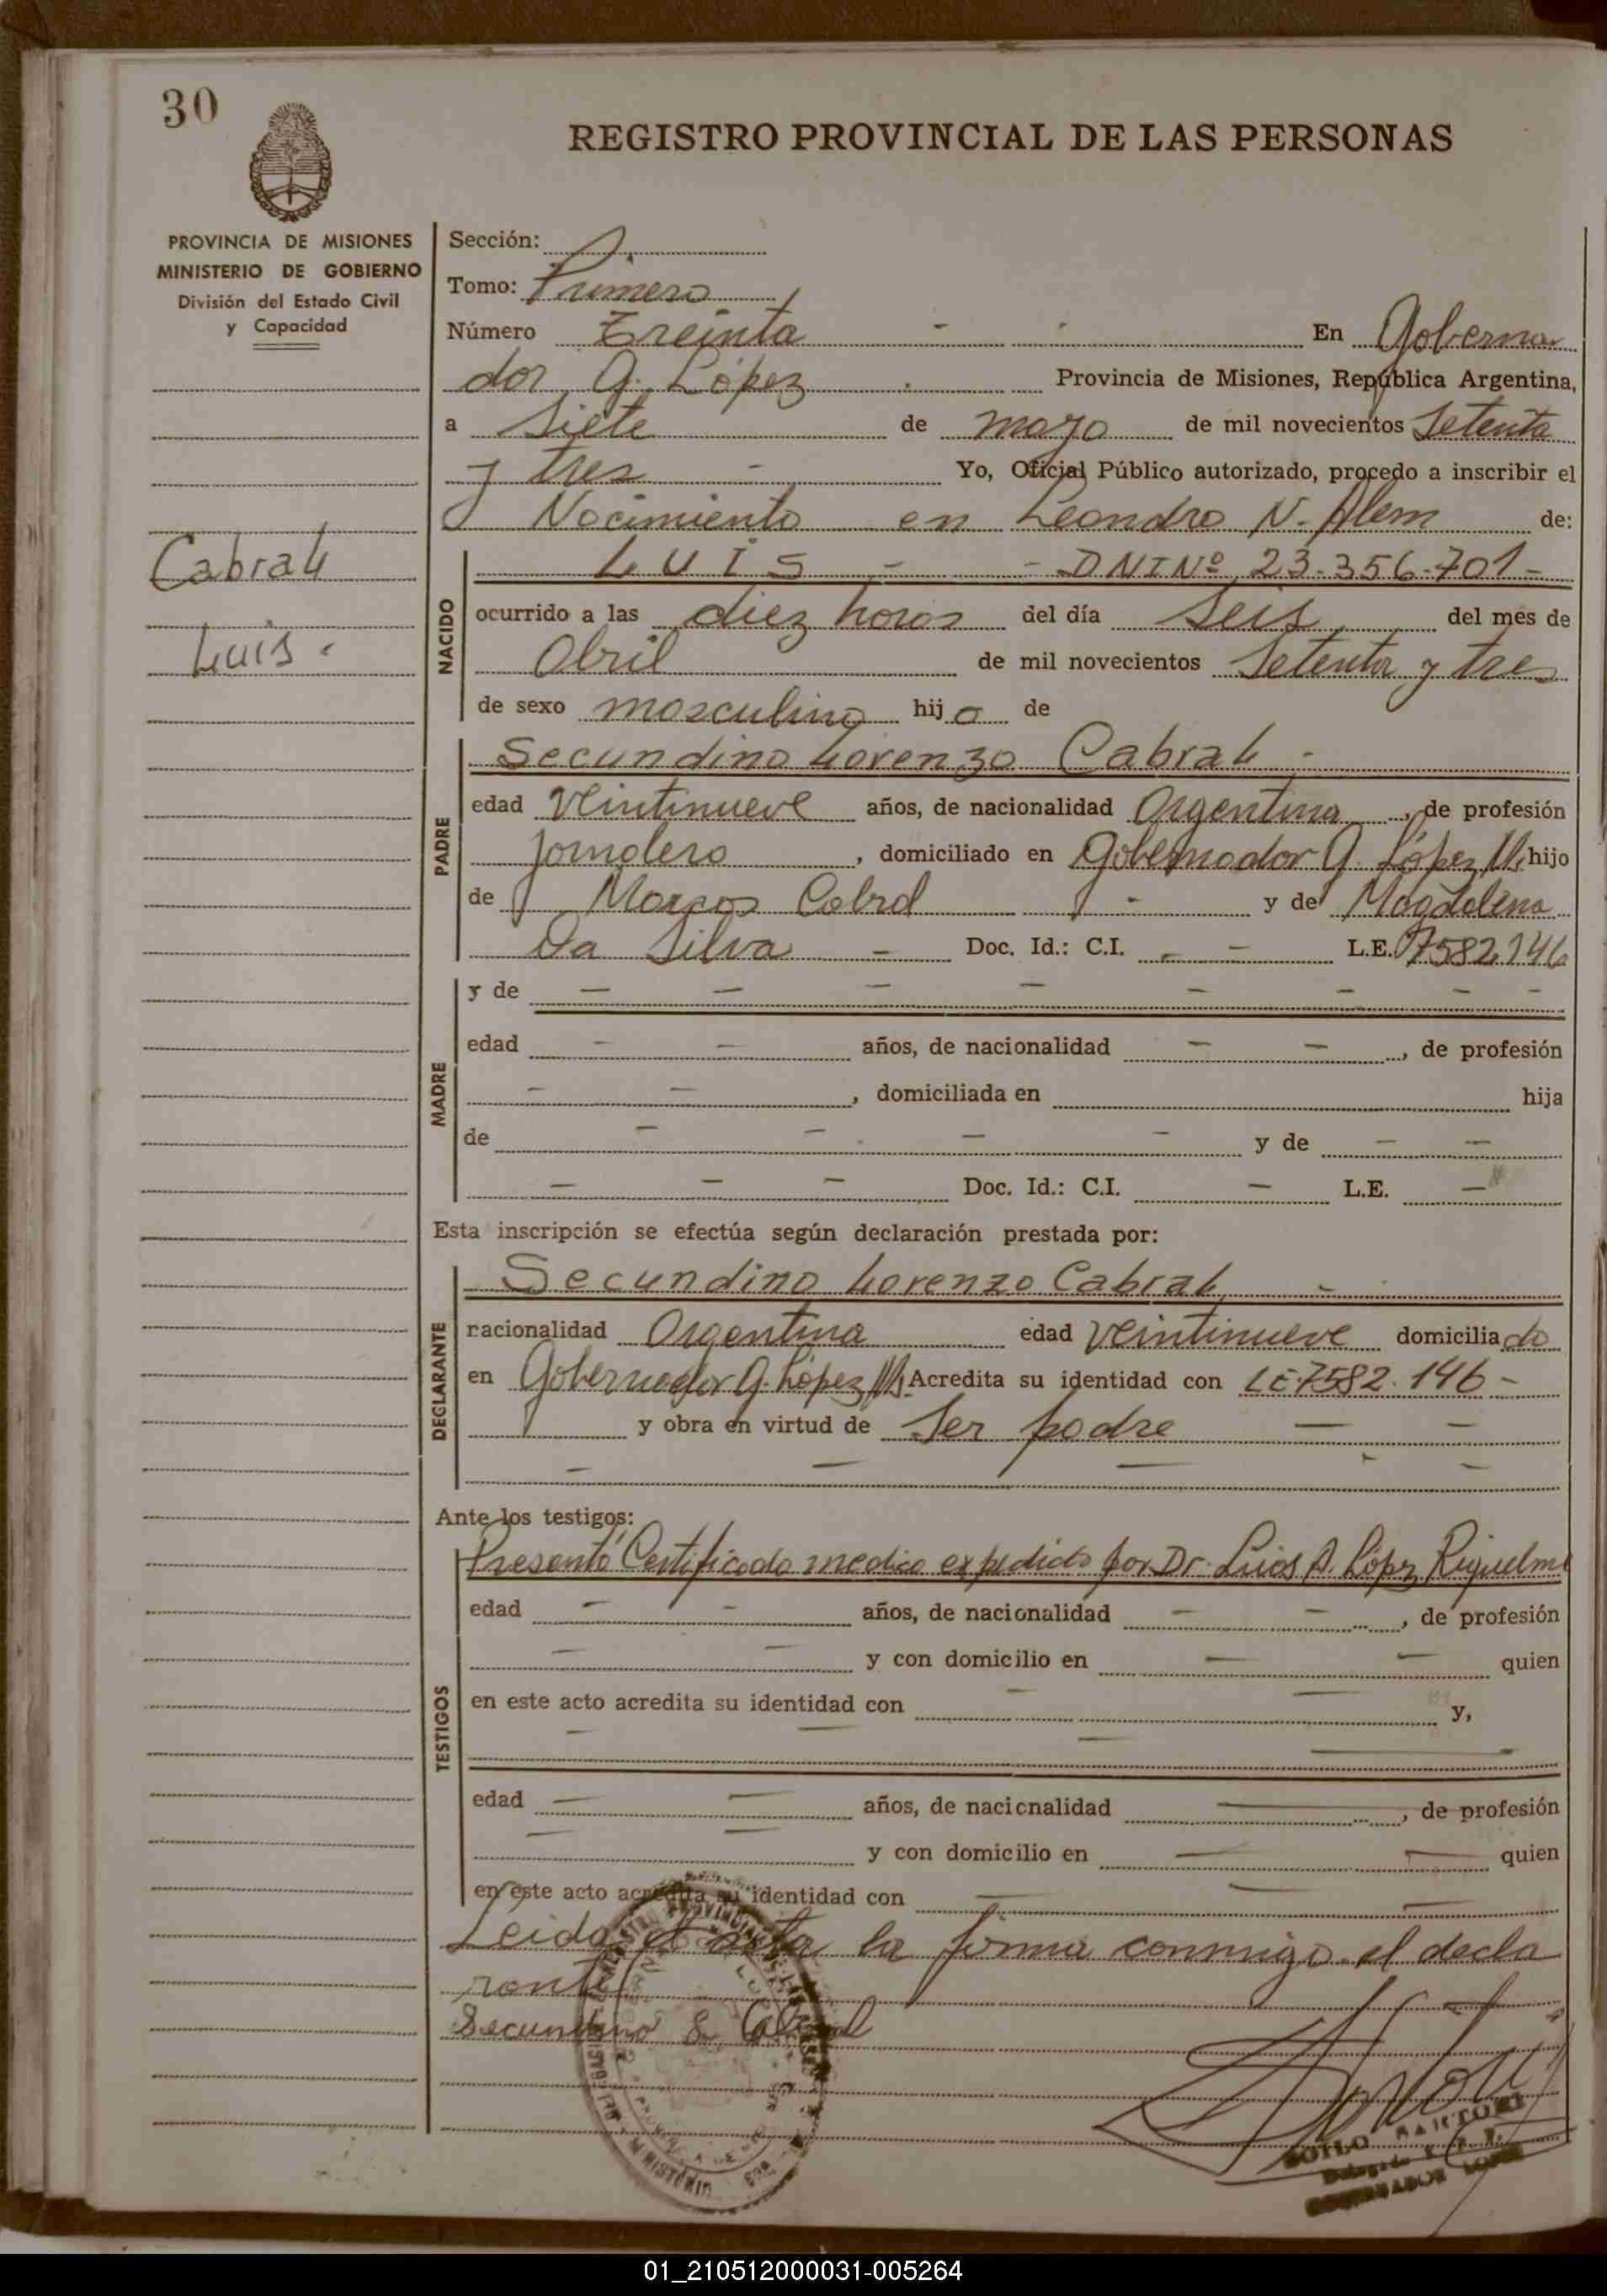 30
REGISTRO PROVINCIAL DE LAS PERSONAS
PROVINCIA DE MISIONES
MINISTERIO DE GOBIERNO
División del Estado Civil
y Capacidad
Cabral
Luis.
Sección:
Tomo: Primero
Número Treinta - - En Goberna
dor G. López Provincia de Misiones, República Argentina,
a Siete de mayo de mil novecientos Setenta
y tres - Yo, Oficial Público autorizado, procedo a inscribir el
Nacimiento en Leandro N. Alem de:
NACIDO
LUIS - - DNI Nº 23.356.701-
ocurrido a las diez horas del día Seis del mes de
Abril de mil novecientos Setenta y tres
de sexo masculino hijo de
PADRE
Secundino Lorenzo Cabral -
edad Veintinueve años, de nacionalidad Argentina, de profesión
Jornalero, domiciliado en Gobernador G. López Ms. hijo
de Marcos Cabral - y de Magdalena
Da Silva - Doc. Id.: C.I. - - L.E. 7582.146
MADRE
y de - - - - - - - -
edad - - años, de nacionalidad - -, de profesión
- -, domiciliada en hija
de - - - - y de - -
- - - Doc. Id.: C.I. - L.E. -
Esta inscripción se efectúa según declaración prestada por:
DECLARANTE
Secundino Lorenzo Cabral -
nacionalidad Argentina edad Veintinueve domiciliado
en Gobernador G. López Ms. Acredita su identidad con LE.7582.146 -
y obra en virtud de Ser padre - -
- - - - -
Ante los testigos:
TESTIGOS
Presentó Certificado medico expedido por Dr. Luis A. López Riquelme
edad - - años, de nacionalidad - -, de profesión
- - y con domicilio en - - quien
en este acto acredita su identidad con - - y,
- - - -
edad - - años, de nacionalidad -, de profesión
- - y con domicilio en - - quien
en este acto acredita su identidad con - - -
Leida el acta la firma conmigo el decla
rante
Secundino L Cabral
SARTORI
GOBERNADOR LOPEZ
01_210512000031-005264